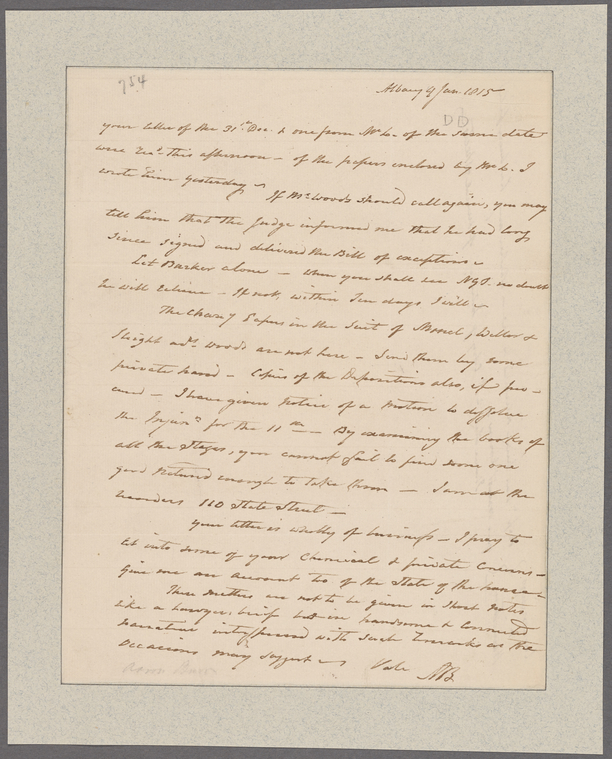 754
Albany 9 Jan. 1815
D D
your letter of the 31st Dec. & one from Mr L. of the same date
were recd this afternoon — of the papers enclosed by Mr L. I
wrote him yesterday
If Mr Woods should call again, you may
tell him that the Judge informed me that he had long
since signed and delivered the Bill of exceptions
Let Barker alone — when you shall see no doubt
he will — If not, within Ten days, I will
The Chancy papers in the Suit of &
Sleight ads. Woods are not here — Send them by some
private hand — Copies of the Depositions also, if pro-
cured — I have given notice of a motion to dissolve
the Injuncn for the 11th — By examining the books of
all the Stages, you cannot fail to find some one
good natured enough to take them — I am at the
110 State Street —
your letter is wholly of business — I pray to be
let into some of your Chemical & private Concerns —
Give me an account too of the State of the house
These matters are not to be given in short notes
like a lawyers brief but in handsome & connected
narrative interspersed with such remarks as the
Occasions may suggest
Vale
AB.
Aaron Burr